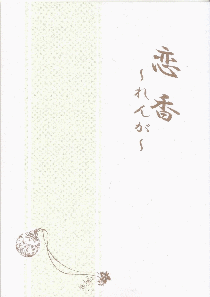 恋香
～れんが～